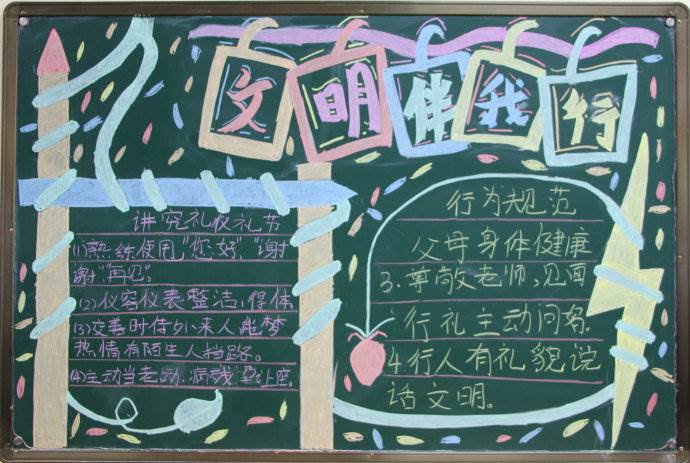 文明伴我行
讲究礼仪礼节
(1)熟练使用"您好"、"谢
谢"、"再见"。
(2)仪容仪表整洁,得体
(3)交善时待外来人
热情有陌生人挡路。
(4)主动当老幼、病残、孕让座。
行为规范
父母身体健康
3.尊敬老师,见面
行礼主动问好
4.行人有礼貌说
话文明。